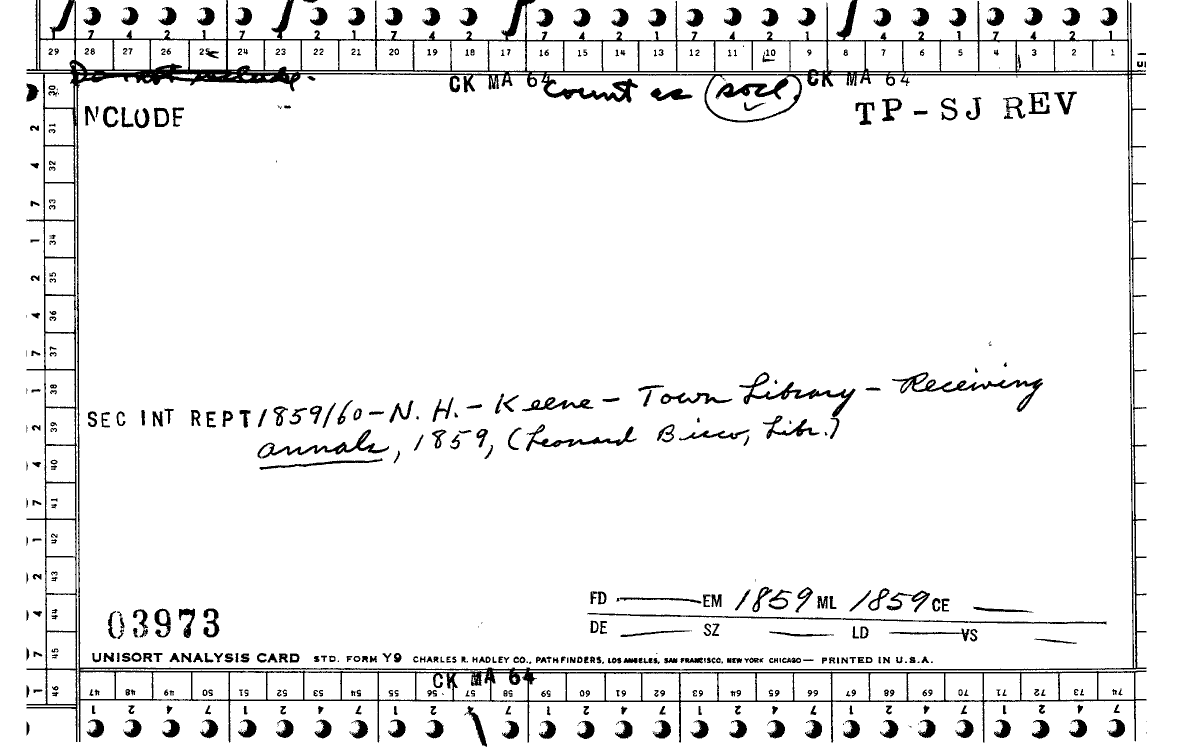 7 4 2 1 7 4 2 1 7 4 2 1 7 4 2 1 7 4 2 1 7 4 2 1 7 4 2 1
29 28 27 26 25 24 23 22 21 20 19 18 17 16 15 14 13 12 11 10 9 8 7 6 5 4 3 2 1
Do not include.
CK MA 64 count as (socl) CK MA 64
NCLUDE TP-SJ REV
30
2 31
4 32
7 33
1 34
2 35
4 36
7 37
1 38
2 39
4 40
7 41
1 42
2 43
4 44
7 45
1 46
SEC INT REPT 1859/60 - N. H. - Keene - Town Library - Receiving
annals, 1859, (Leonard Bisco, Libr.)
FD EM 1859 ML 1859 CE
DE SZ LD VS
03973
UNISORT ANALYSIS CARD STD. FORM Y9 CHARLES R. HADLEY CO., PATHFINDERS, LOS ANGELES, SAN FRANCISCO, NEW YORK CHICAGO — PRINTED IN U.S.A.
CK MA 64
47 48 49 50 51 52 53 54 55 56 57 58 59 60 61 62 63 64 65 66 67 68 69 70 71 72 73 74
1 2 4 7 1 2 4 7 1 2 4 7 1 2 4 7 1 2 4 7 1 2 4 7 1 2 4 7